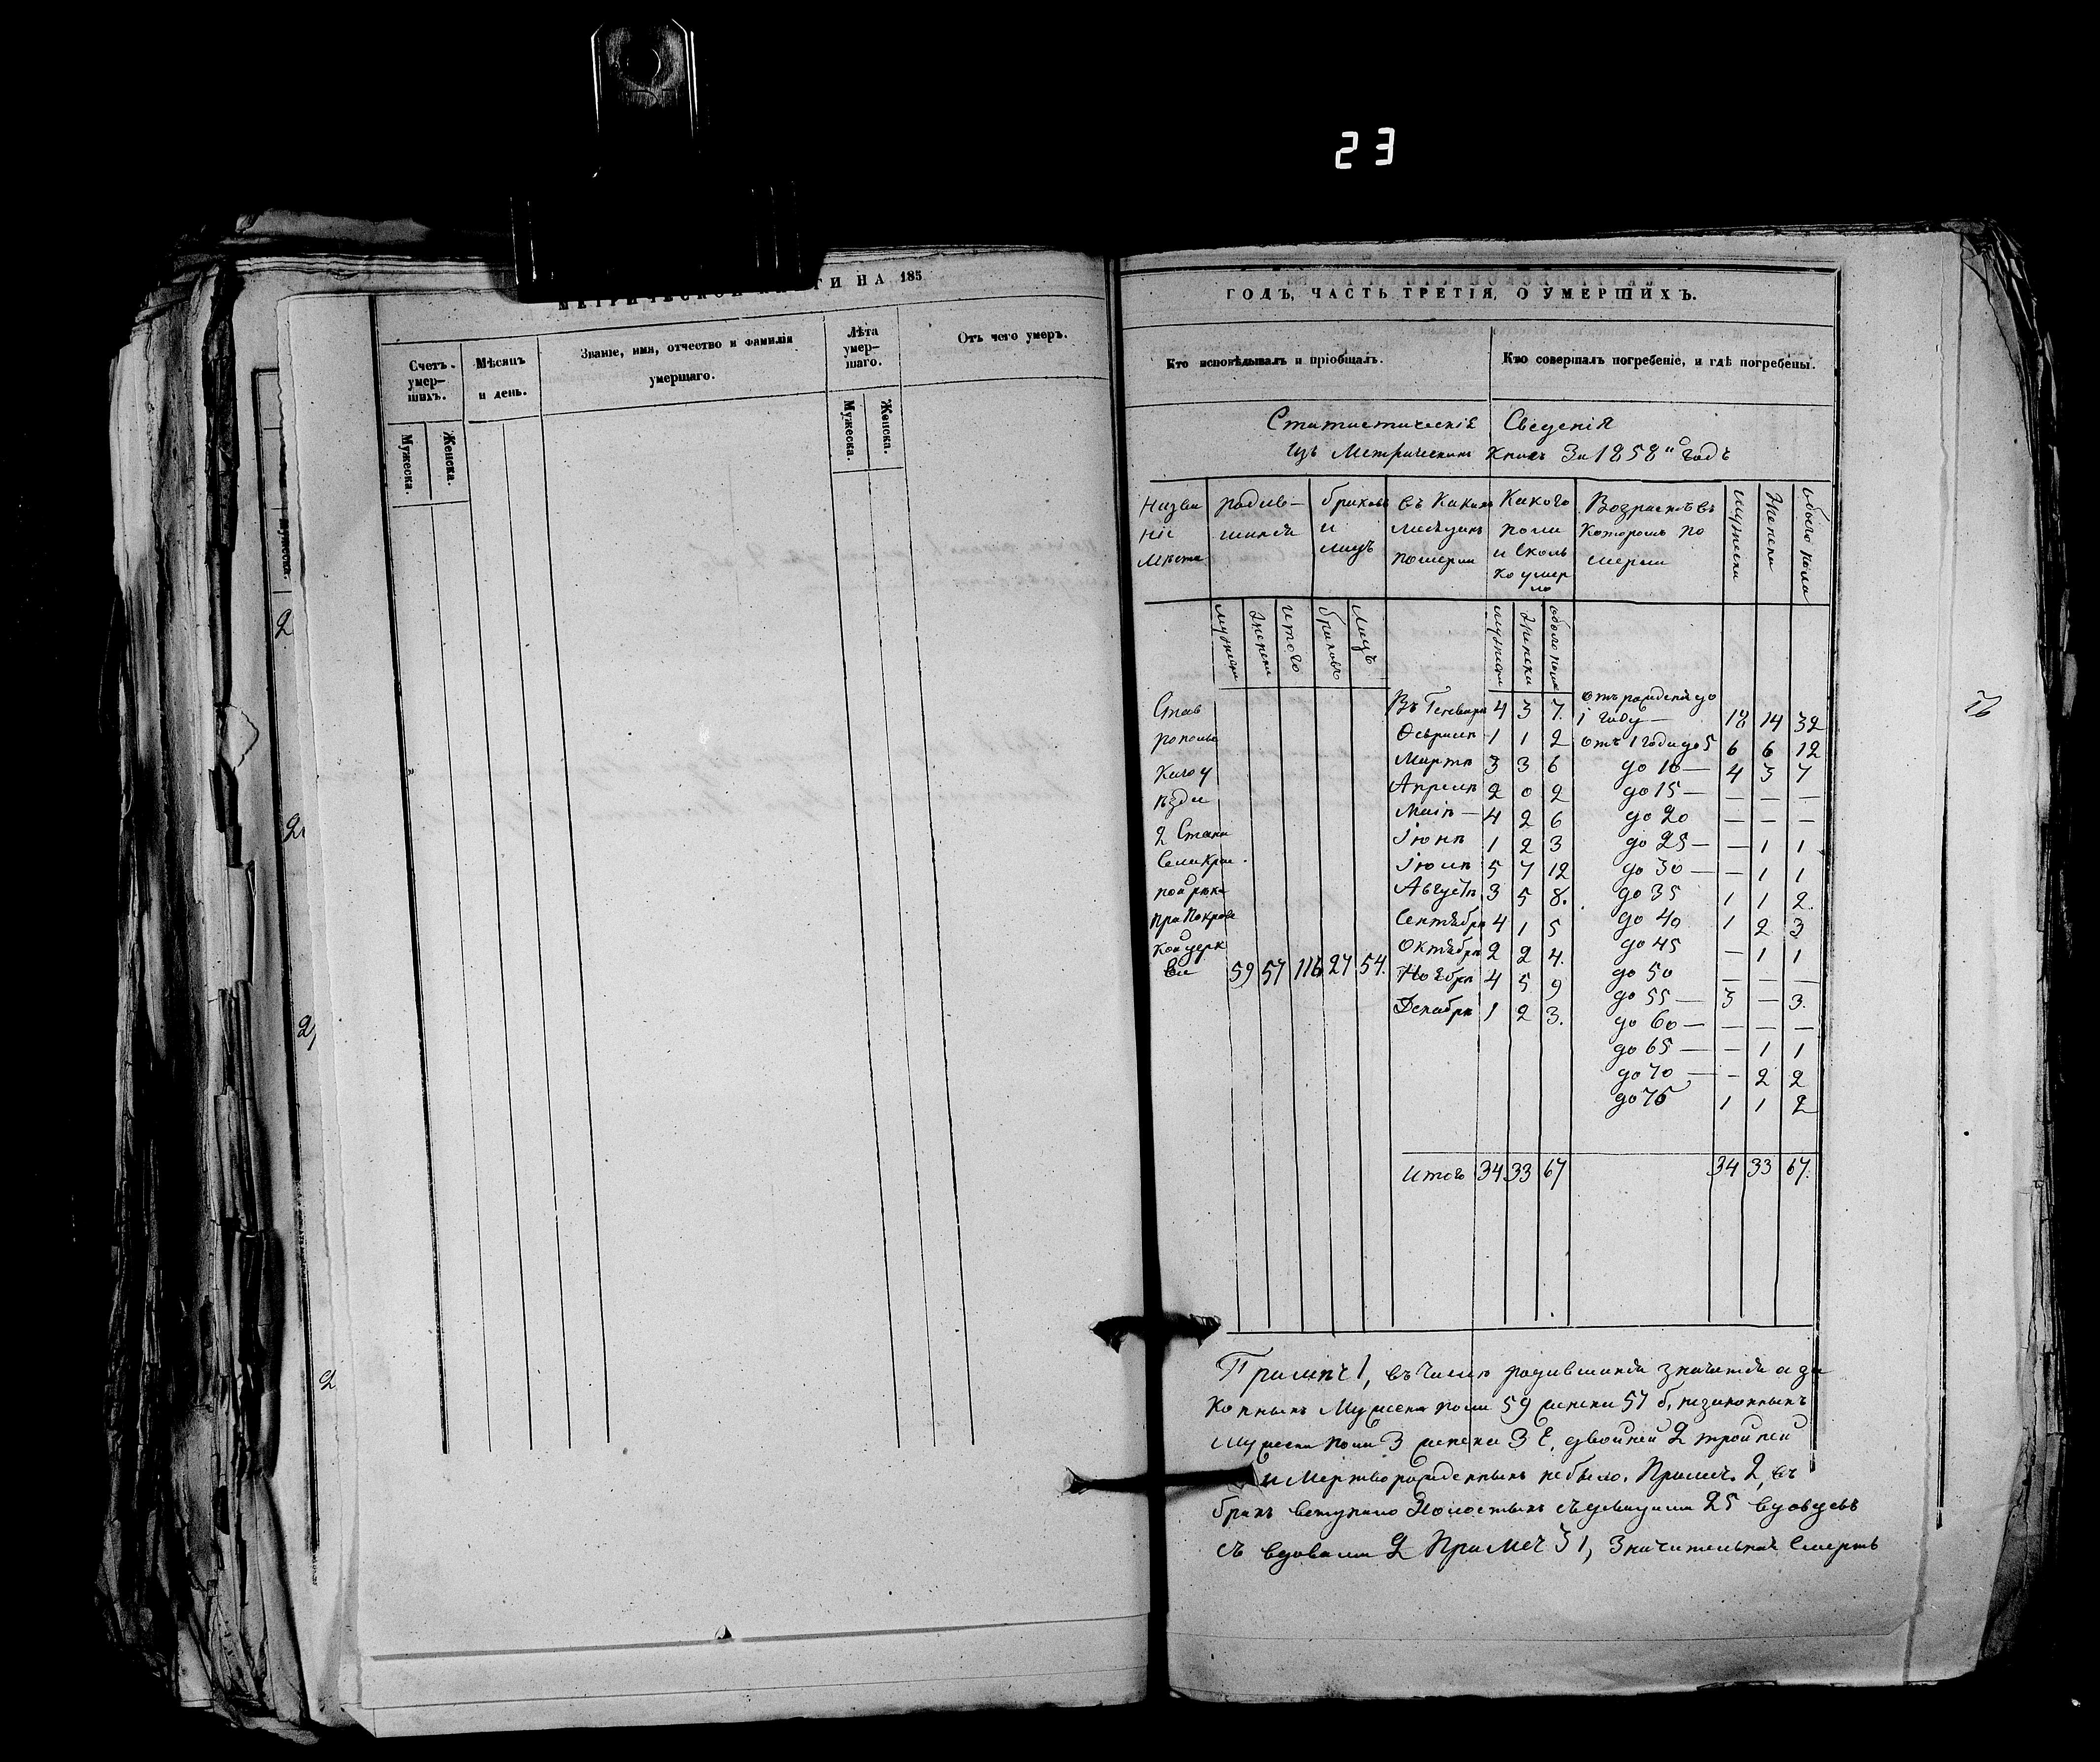 23
МЕТРИЧЕСКОЙ КНИГИ НА 185
Счетъ умер-шихъ.
Мѣсяцъ и день.
Званіе, имя, отчество и фамилія умершаго.
Лѣта умер-шаго.
Отъ чего умеръ.
Мужеска.
Женска.
Мужеска.
Женска.
ГОДЪ, ЧАСТЬ ТРЕТІЯ, О УМЕРШИХЪ.
Кто исповѣдывалъ и пріобщалъ.
Кто совершалъ погребеніе, и гдѣ погребены.
16
Статистическія Сведенія
Изъ Метрическихъ Книгъ За 1858й годъ
Назва нія мѣста
родив-шихся
браковъ и лицъ
въ Какихъ месяцахъ померли
Какого пола и Сколь ко умер ло
Возрастъ въ Которомъ по мерли
мужеска
Женска
обоего пола
мужеска
женска
Итого
браковъ
лицъ
мужеска
женска
обоего пола
Став рополь Каго у ѣзда 2 Стана Села при Покров кой церк ви
59 57 116 27 54.
Въ Генварѣ 4 3 7.
Февралѣ 1 1 2
Мартѣ 3 3 6
Апрелѣ 2 0 2
Маіѣ — 4 2 6
Іюнѣ 1 2 3
Іюлѣ 5 7 12
Августѣ 3 5 8.
Сентябрѣ 4 1 5
Октябрѣ 2 2 4.
Ноябрѣ 4 5 9
Декабрѣ 1 2 3.
Итого 34 33 67
отъ рожденія до
1 году — 18 14 32
отъ 1 года до 5 6 6 12
до 10 — 4 3 7
до 15 — — — —
до 20 — — —
до 25 — — 1 1
до 30 — — 1 1
до 35 1 1 2
до 40 1 2 3
до 45 — 1 1
до 50 — — —
до 55 — 3 — 3.
до 60 — — — —
до 65 — — 1 1
до 70 — — 2 2
до 75 1 1 2
34 33 67.
Примѣч 1, въ числѣ родившихся значатся а за
конныхъ Мужеска пола 59 женска 57 б, незаконныхъ
мужеска пола 3 женска 3 в, двойней 2 тройней
и Мертворожденныхъ небыло. Примеч. 2, въ
бракъ вступило Холостыхъ съ девицами 25 вдовцевъ
съ вдовами 2 Примеч 3, Значительная Смерть